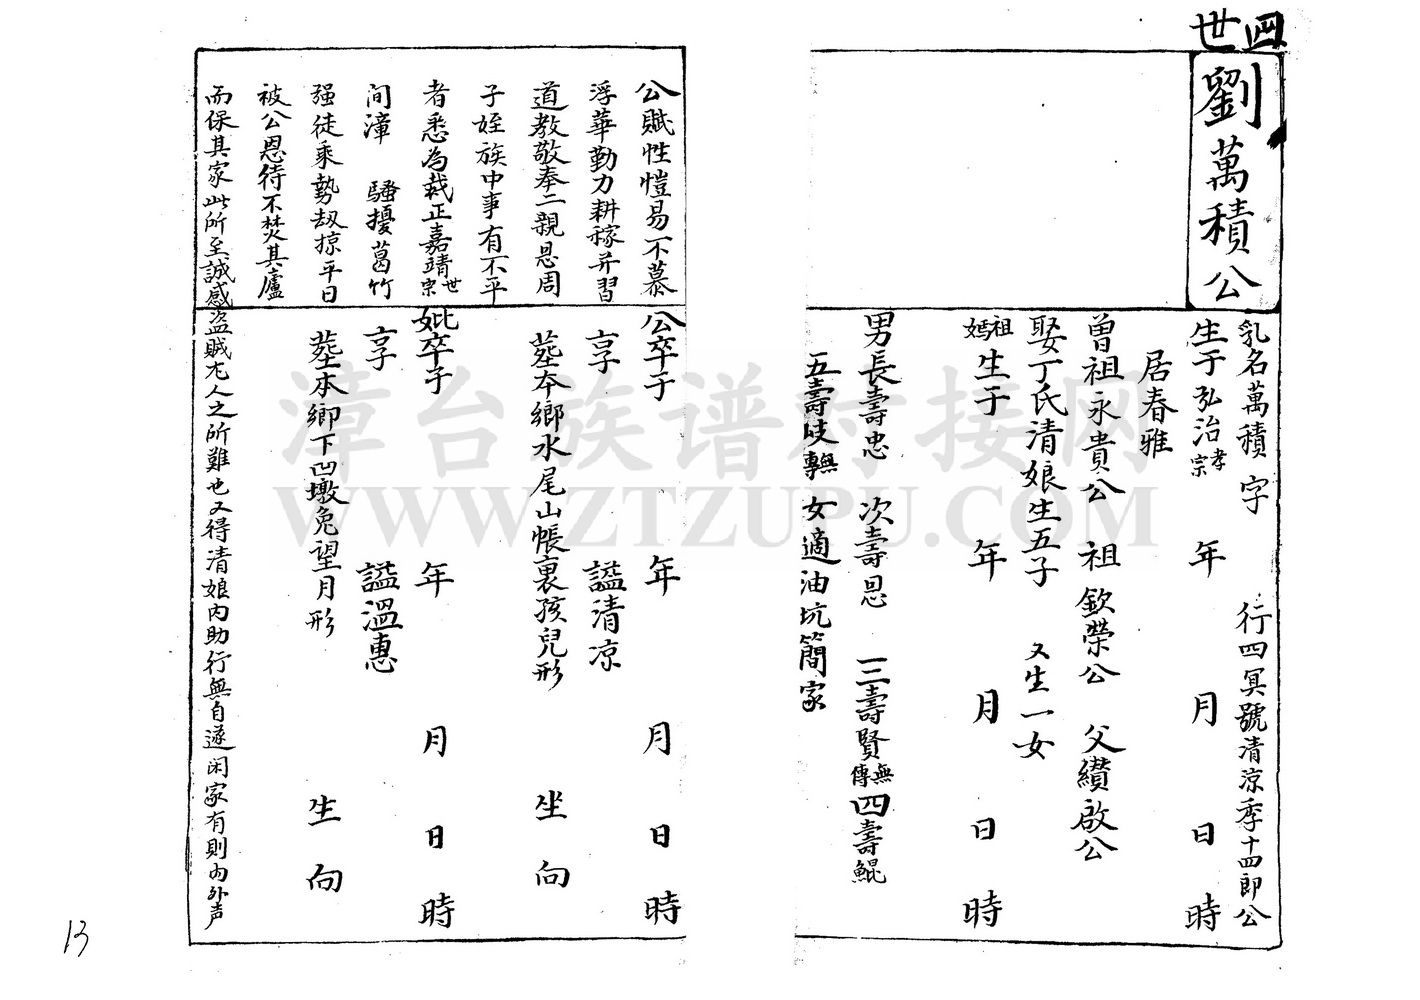 四世
劉萬積公
乳名萬積 字 行四冥號清涼季十四郎公
生于弘治孝宗 年 月 日 時
居春雅
曾祖永貴公 祖欽榮公 父纘啟公
娶丁氏清娘生五子 又生一女
祖媽生于 年 月 日 時
男長壽忠 次壽恩 三壽賢無傳 四壽鯤
五壽歧無專 女適油坑簡家
公賦性愷易不慕
浮華勤力耕稼并習
道教敬奉二親恩周
子姪族中事有不平
者悉為裁正嘉靖世宗
间漳 騷擾葛竹
强徒乘勢刼掠平日
被公恩待不焚其廬
而保其家此所至誠感盗賊尤人之所難也又得清娘内助行無自遂闲家有則内外声
公卒于 年 月 日 時
享 謚清凉
塟本鄉水尾山帳裏孩兒形 坐 向
妣卒于 年 月 日 時
享 謚溫惠
塟本鄉下凹墩兔望月形 生 向
13
漳台族谱对接网
WWW.ZTZUPU.COM